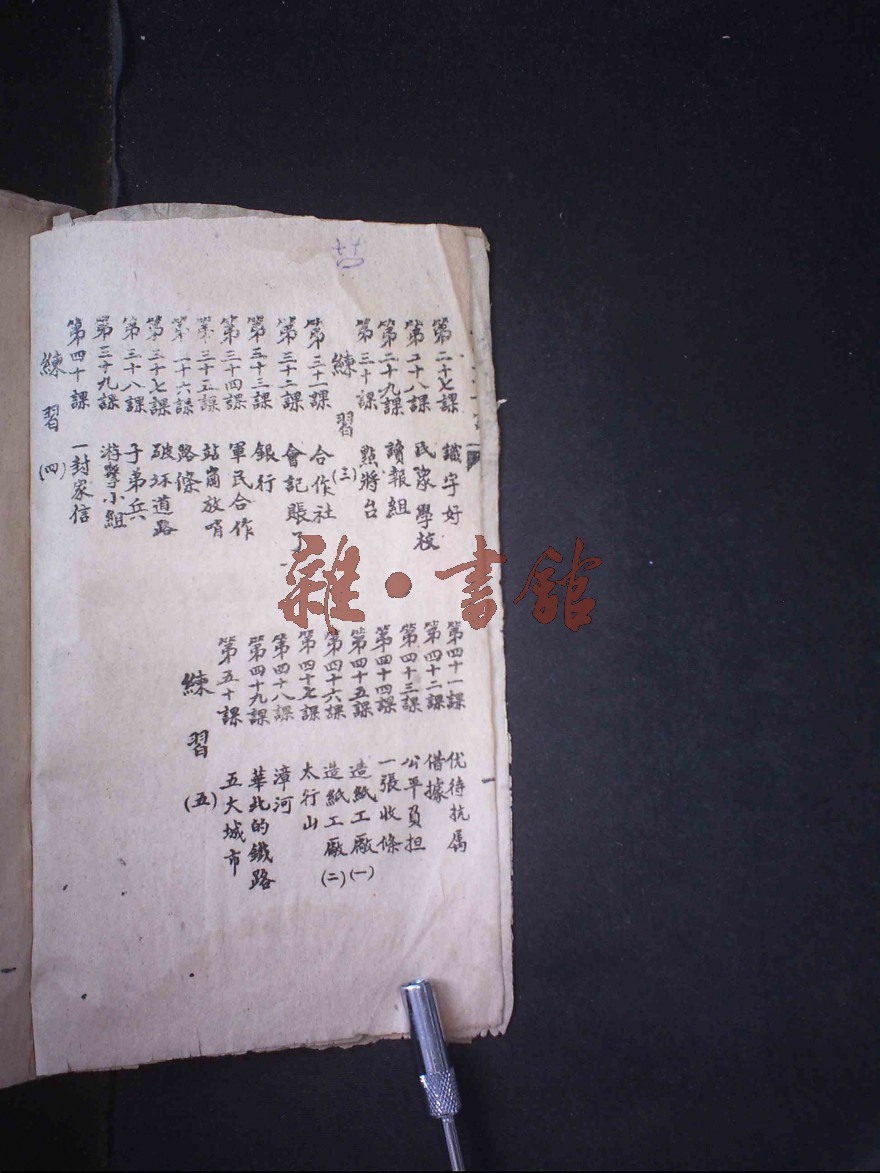 第二十七課 識字好
第二十八課 民眾學校
第二十九課 讀報組
第三十課 點將台
練習(三)
第三十一課 合作社
第三十二課 會記賬了
第三十三課 銀行
第三十四課 軍民合作
第三十五課 站崗放哨
第三十六課 路條
第三十七課 破坏道路
第三十八課 子弟兵
第三十九課 游擊小組
第四十課 一封家信
練習(四)
第四十一課 优待抗属
第四十二課 借據
第四十三課 公平負担
第四十四課 一張收條
第四十五課 造紙工廠(一)
第四十六課 造紙工廠(二)
第四十七課 太行山
第四十八課 漳河
第四十九課 華北的鐵路
第五十課 五大城市
練習(五)
雜·書舘